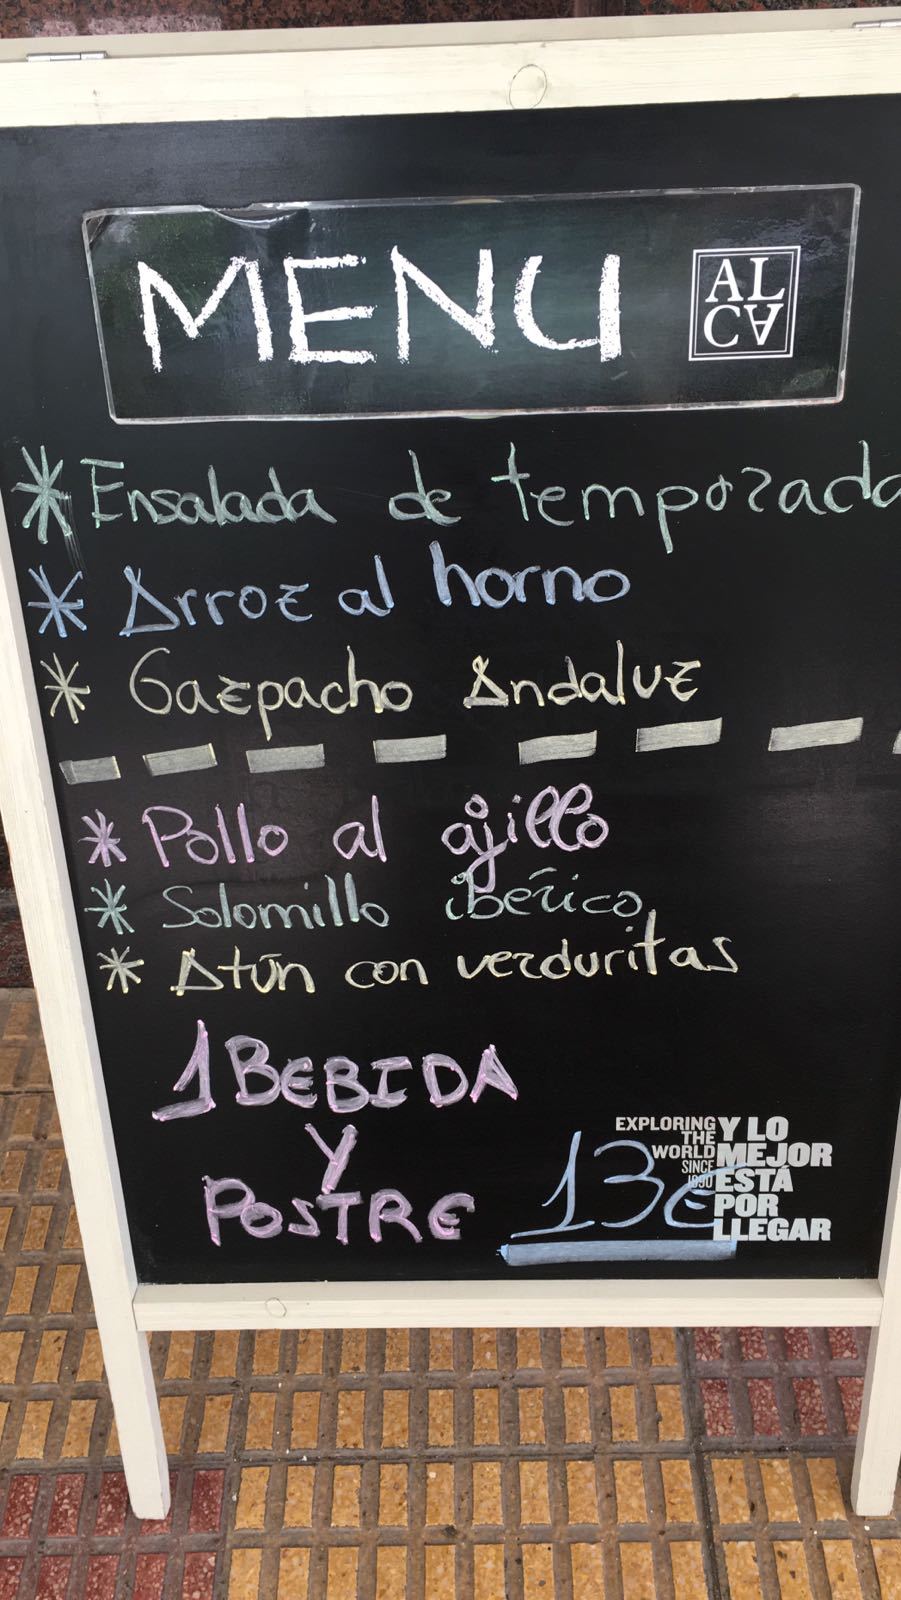 MENU
AL
CA
* Ensalada de temporada
* Arroz al horno
* Gazpacho Andaluz
* Pollo al ajillo
* Solomillo ibérico
* Atún con verduritas
1 BEBIDA
Y
POSTRE
13€
EXPLORING
THE
WORLD
SINCE
1890
Y LO
MEJOR
ESTÁ
POR
LLEGAR